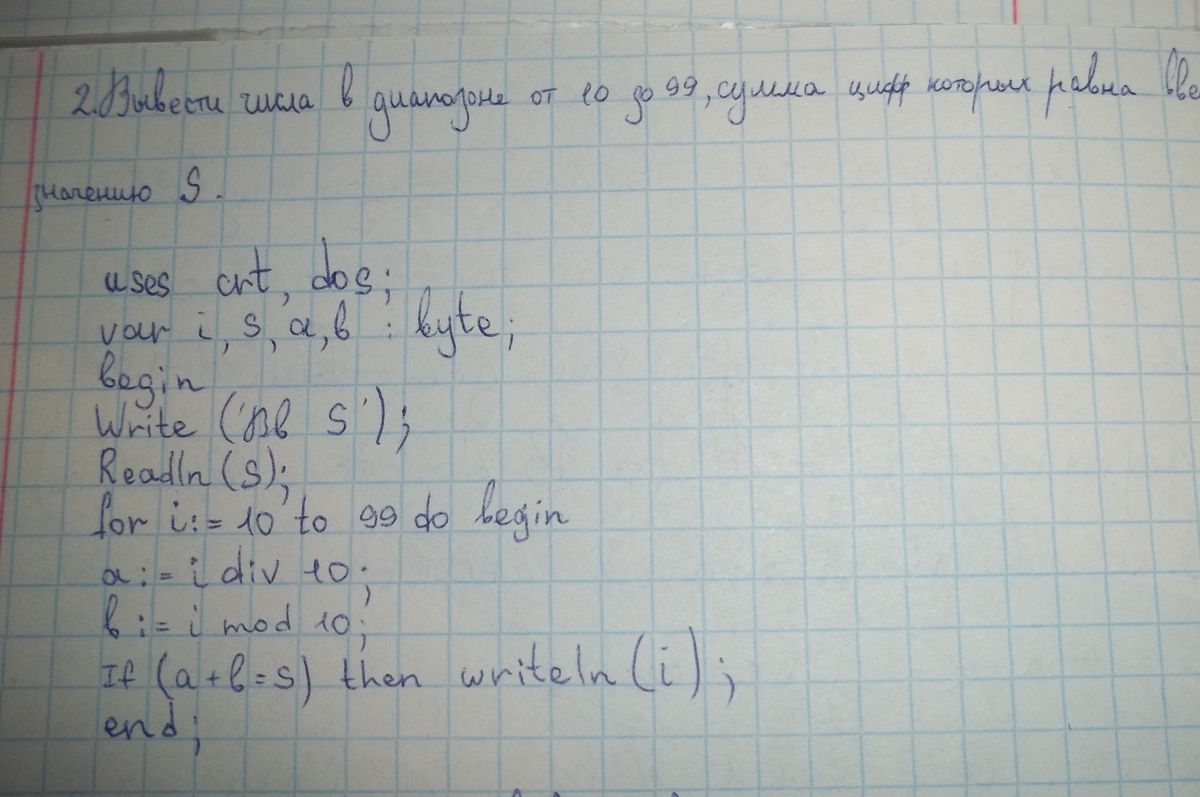 2. Вывести числа в диапозоне от 10 до 99, сумма цифр которых равна вве
значению S.
uses crt, dos;
var i, s, a, b : byte;
begin
Write ('Вв S');
Readln (S);
for i:= 10 to 99 do begin
a := i div 10;
b := i mod 10;
If (a+b=s) then writeln (i);
end;